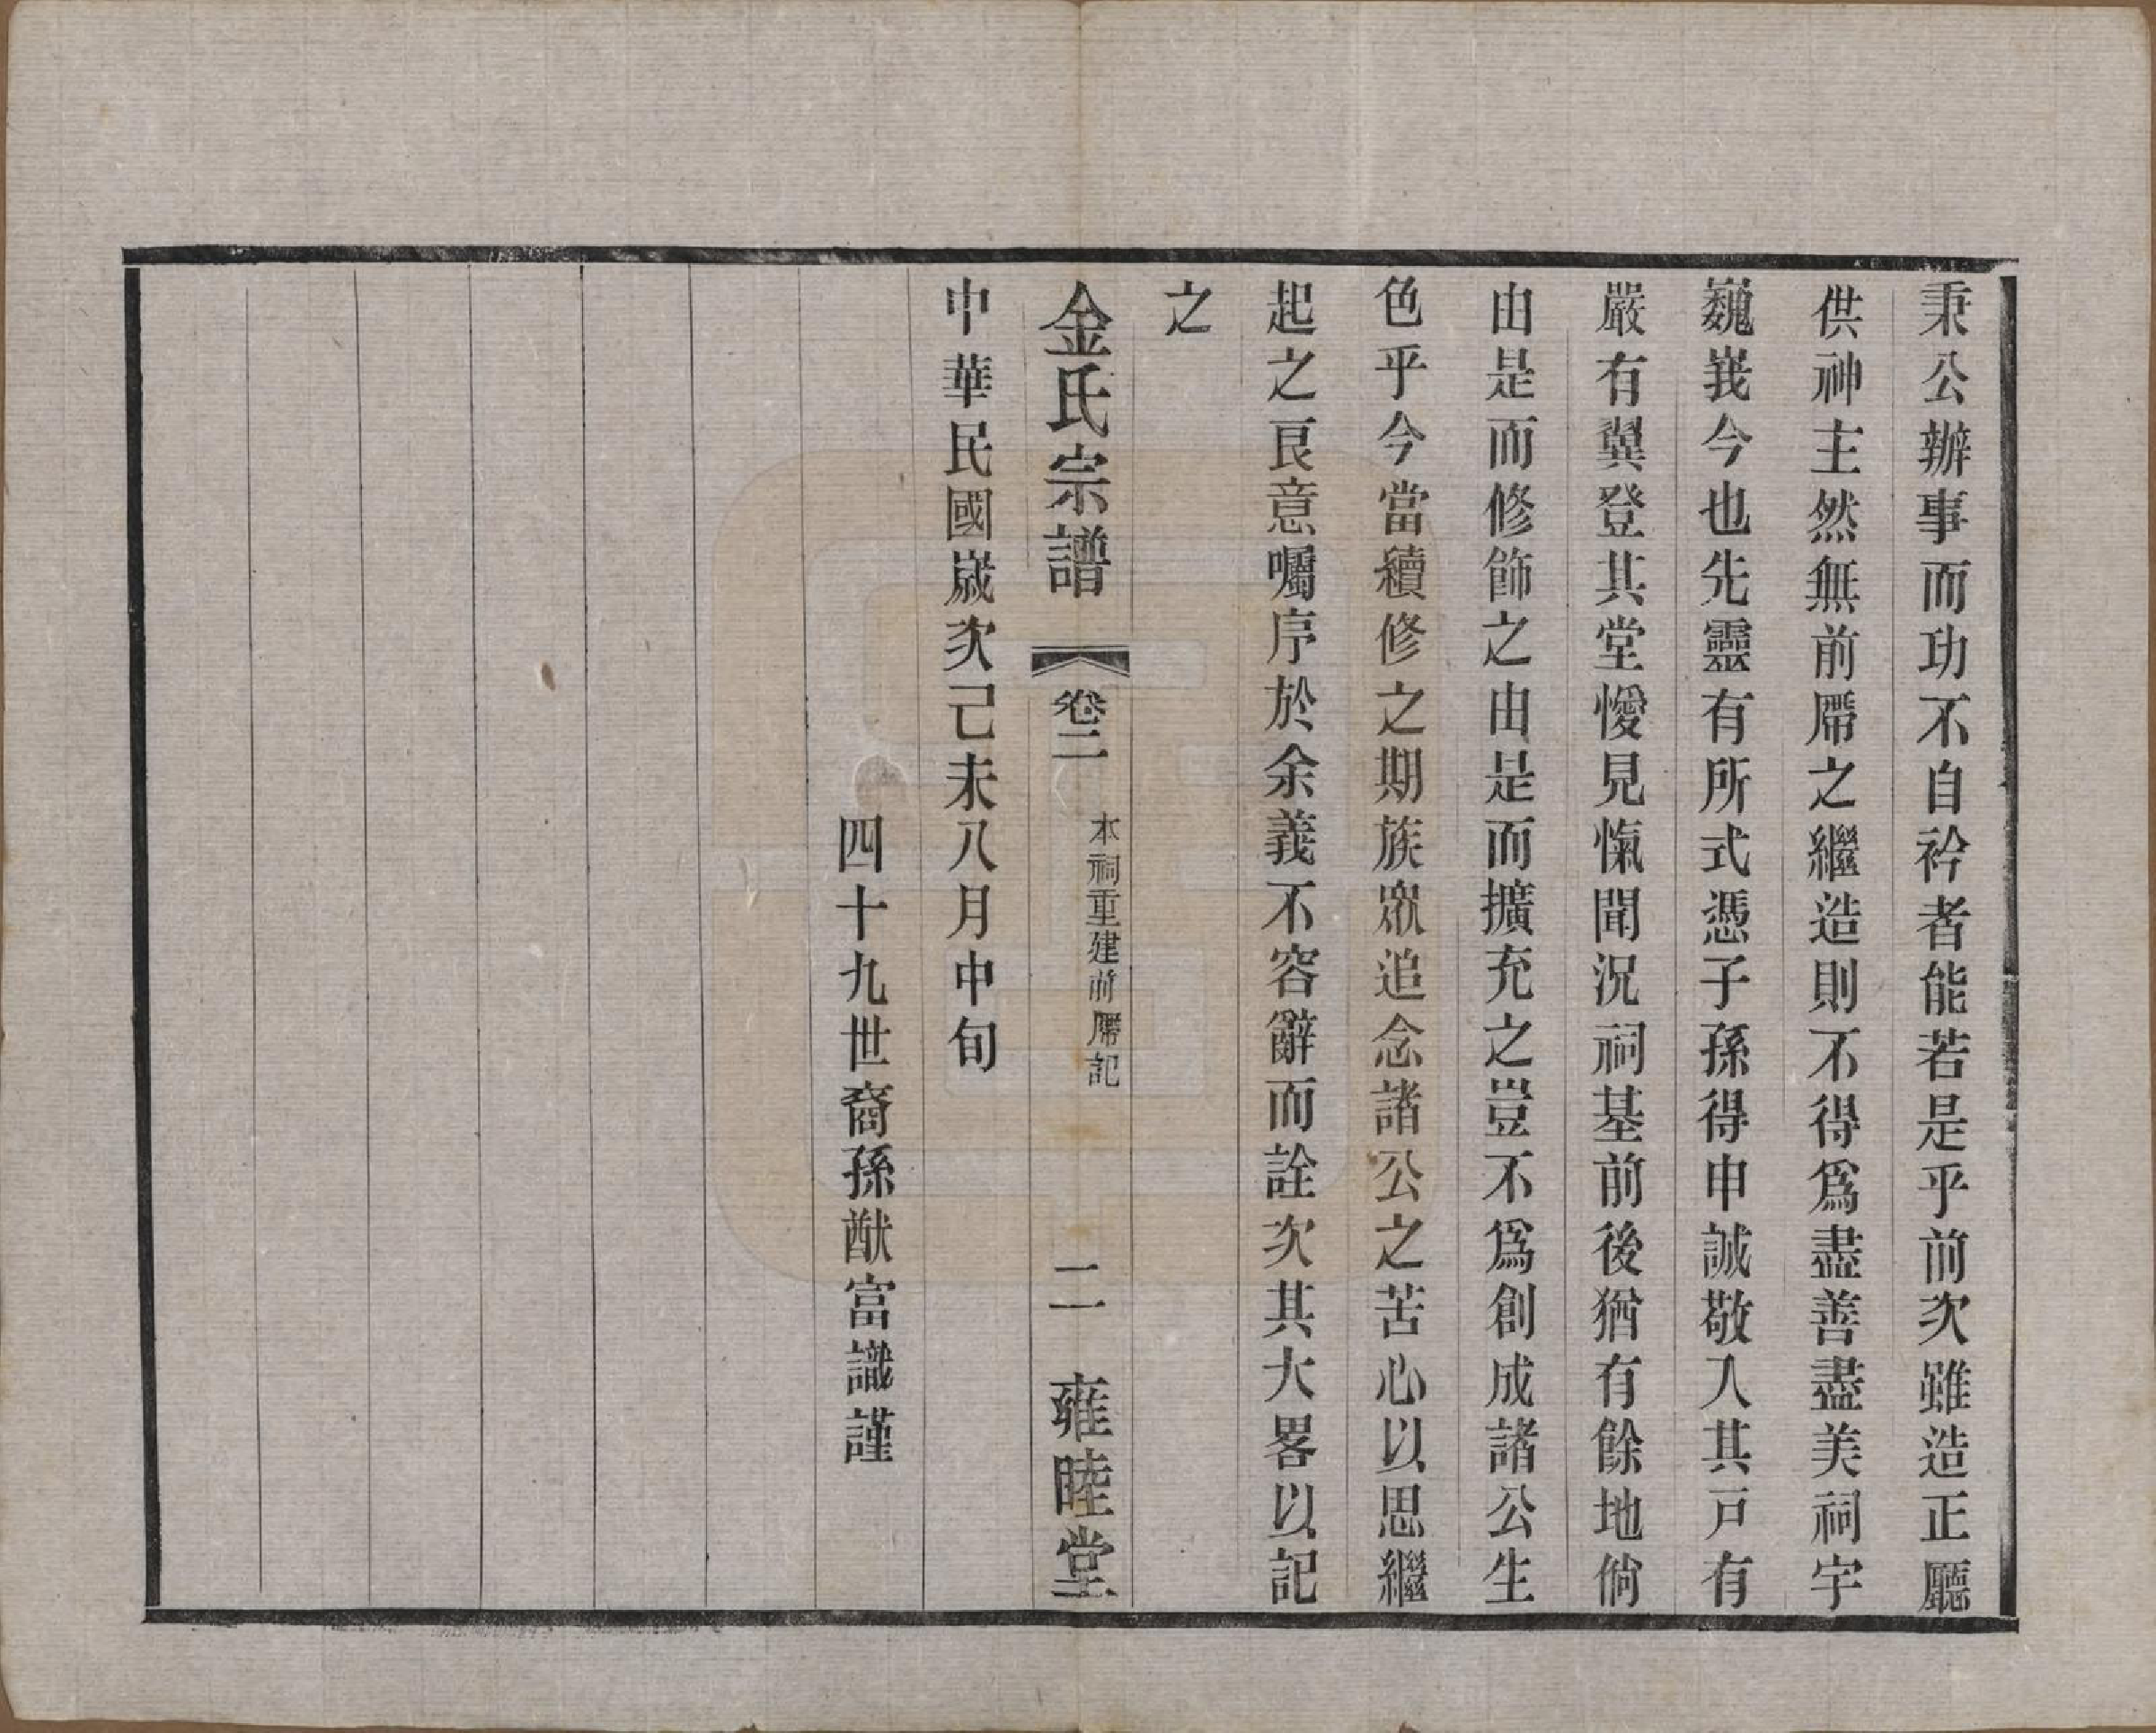 秉公辦事而功不自衿者能若是乎前次雖造正廳
供神主然無前厝之繼造則不得爲盡善盡美祠宇
巍峩今也先靈有所式憑子孫得申誠敬入其戸有
嚴有翼登其堂僾見愾聞況祠基前後猶有餘地倘
由是而修飾之由是而擴充之豈不爲創成諸公生
色乎今當續修之期族眾追念諸公之苦心以思繼
起之良意囑序於余義不容辭而詮次其大畧以記
之
金氏宗譜 卷二 本祠重建前厝記 二 雍睦堂
中華民國嵗次己未八月中旬
四十九世裔孫猷富識謹